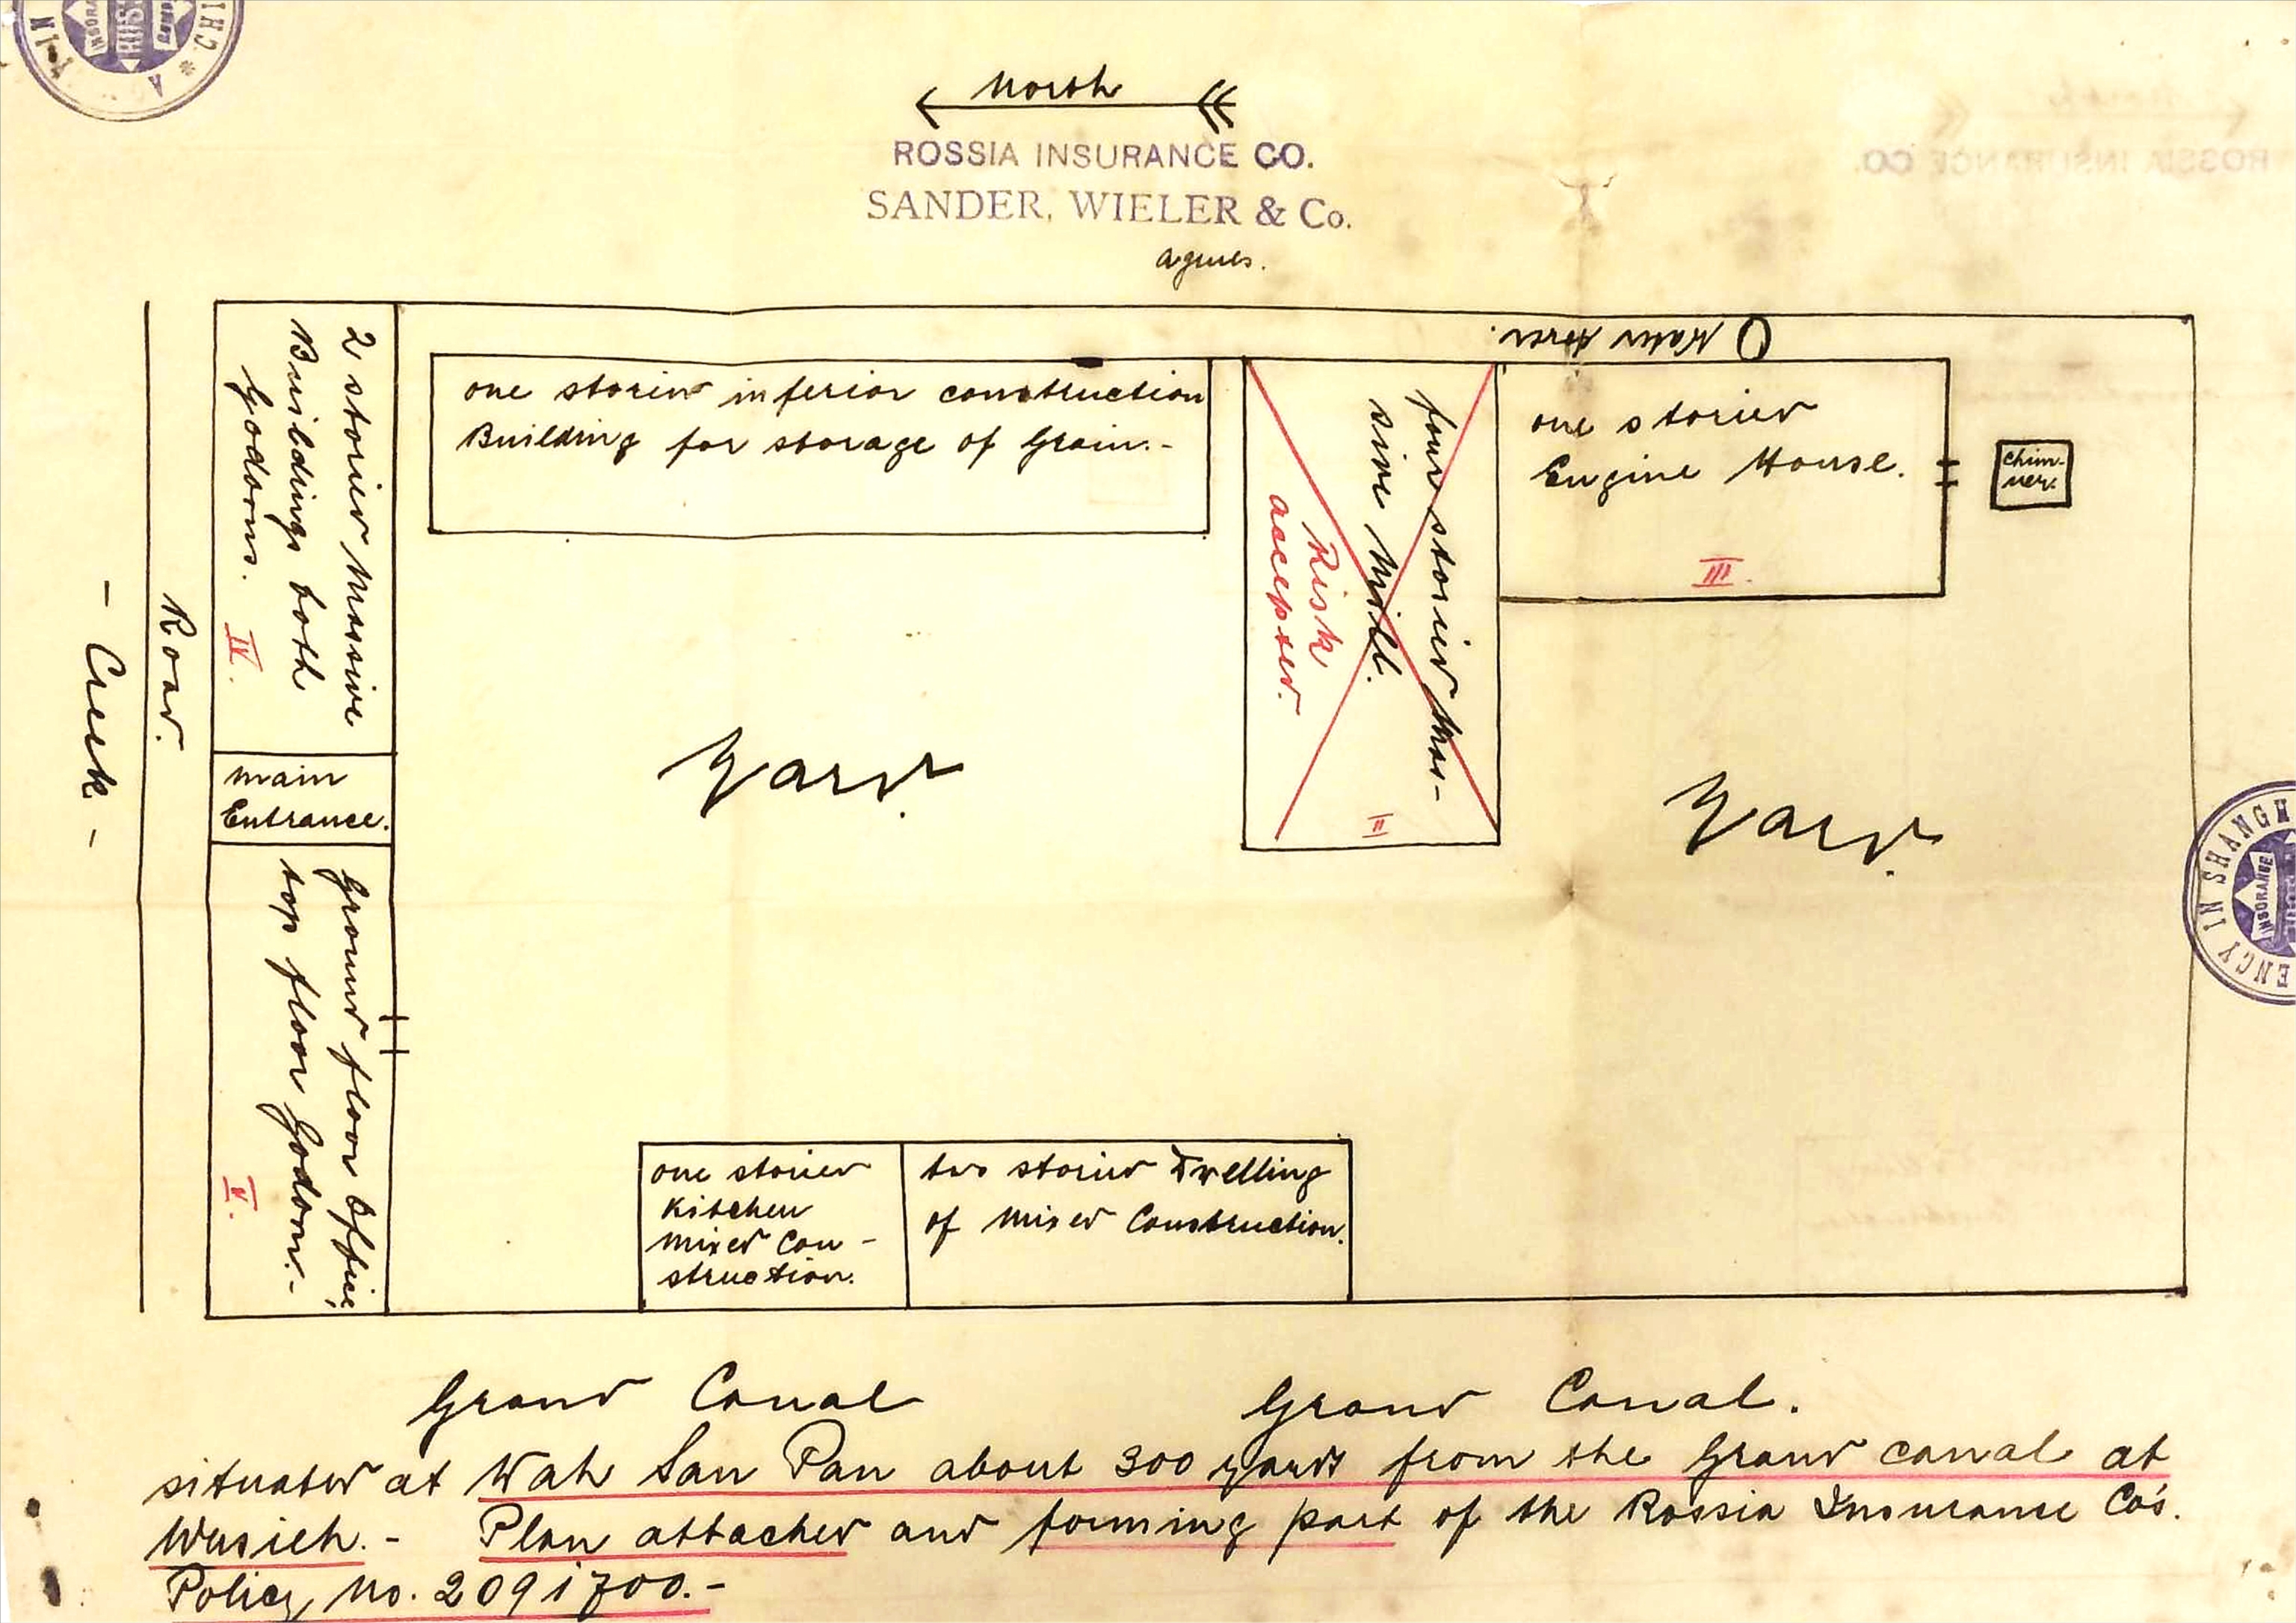 North
ROSSIA INSURANCE CO.
SANDER, WIELER & Co.
agents.
Water tower.
2 storied massive
Buildings both
Godowns.
IV.
one storied inferior construction
Building for storage of Grain.-
four storied mas-
sive Mill.
Risk
accepted.
II
one storied
Engine House.
III.
chim-
ney.
Road.
- Creek -
main
Entrance.
Yard.
Yard.
Ground floor Office,
top floor Godown.-
V.
one storied
Kitchen
mixed Con-
struction.
two storied Dwelling
of mixed Construction.
AGENCY IN SHANGH
INSURANCE
Grand Canal
Grand Canal.
situated at Wah San Pan about 300 yards from the Grand canal at
Wusieh.- Plan attached and forming part of the Rossia Insurance Co's.
Policy No. 2091700.-